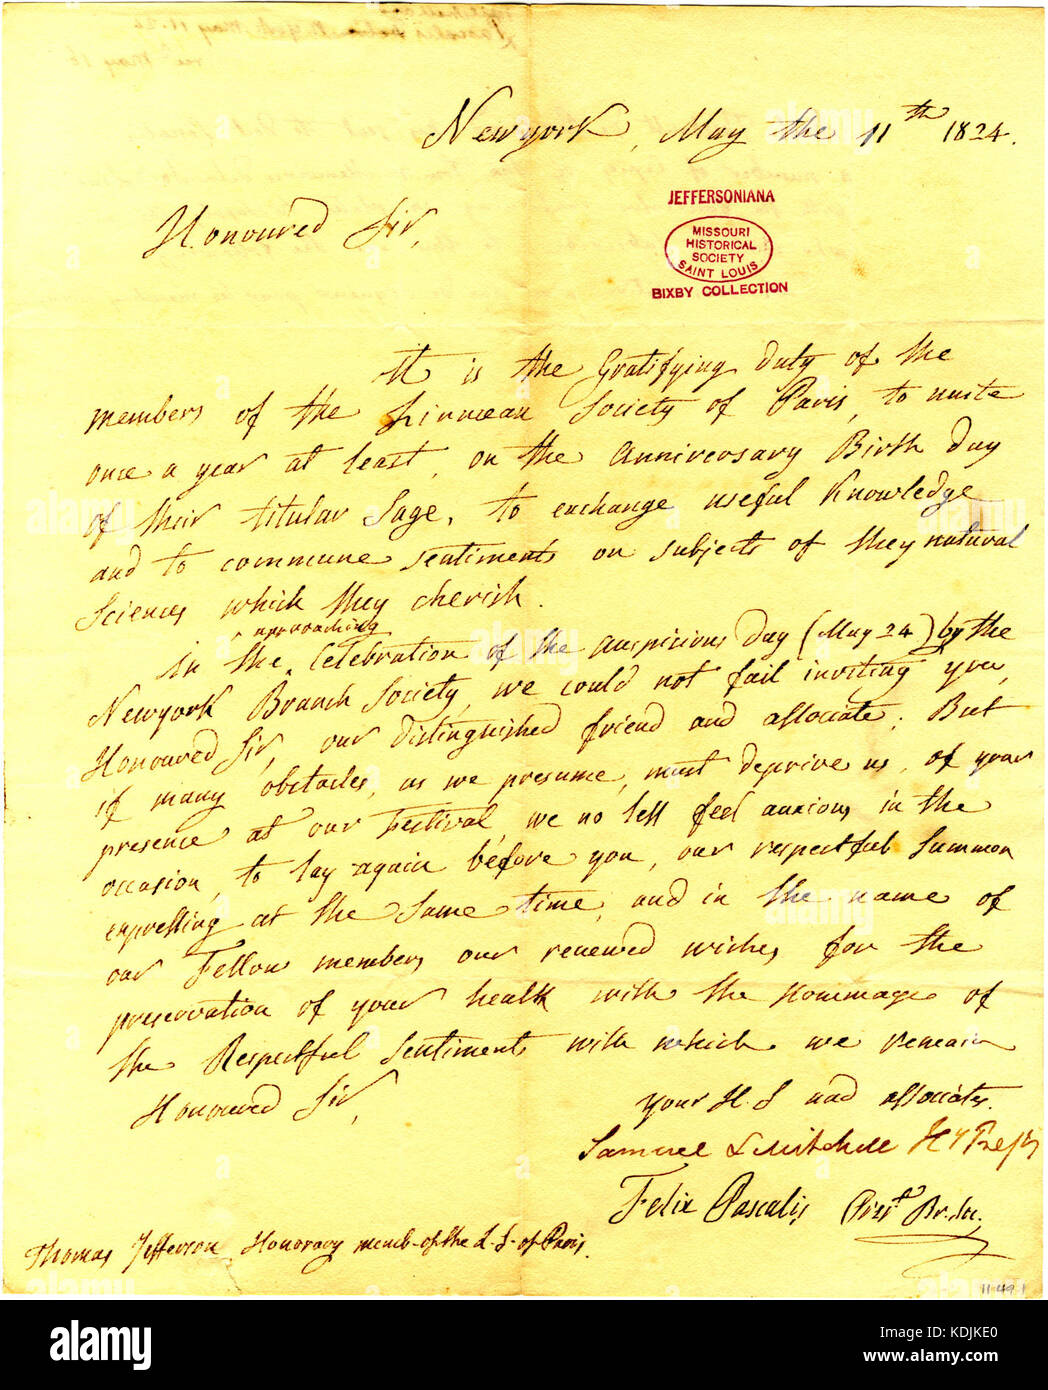 Newyork, May the 11th 1824.
JEFFERSONIANA
MISSOURI
HISTORICAL
SOCIETY
SAINT LOUIS
BIXBY COLLECTION
Honoured Sir,
It is the Gratifying duty of the
members of the Linnæan Society of Paris, to unite
once a year at least, on the Anniversary Birth day
of their titular Sage, to exchange useful Knowledge
and to commune sentiments on subjects of they natural
Sciences which they cherish.
approaching
in the Celebration of the auspicious day (May 24) by the
Newyork Branch Society, we could not fail inviting you,
Honoured Sir, our distinguished friend and associate. But
if many obstacles, as we presume, must deprive us, of your
presence at our Festival, we no less feel anxious in the
occasion, to lay again before you, our respectful Summon
expressing at the same time, and in the name of
our Fellow members our renewed wishes for the
preservation of your health with the Hommage of
the Respectful Sentiments with which we remain
Honoured Sir,
your H. S and associates.
Samuel L Mitchill
Felix Pascalis Prist Br. Soc.
Thomas Jefferson Honorary memb- of the L. S- of Paris.
11 49 1
alamy
Image ID: KDJKE0
www.alamy.com